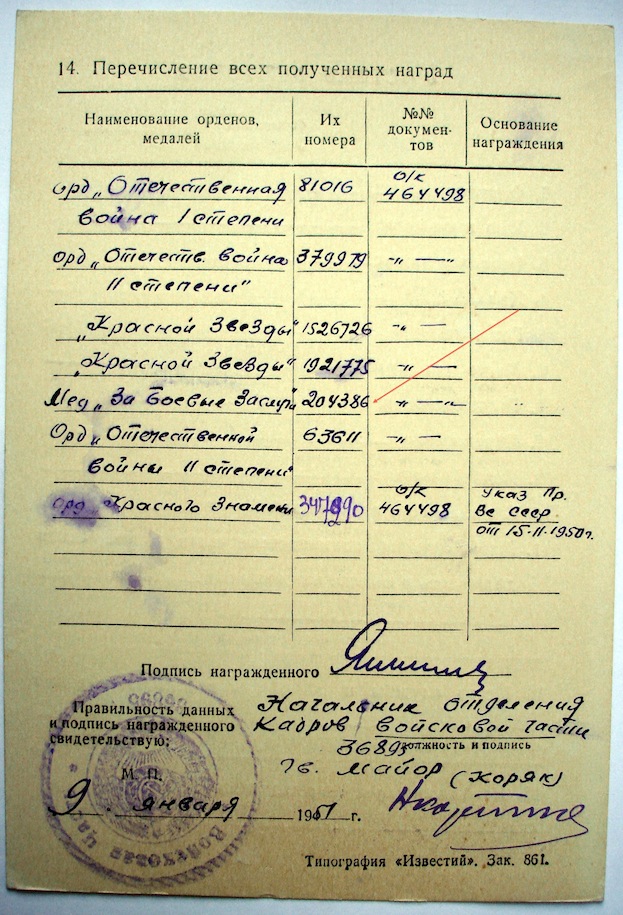 14. Перечисление всех полученных наград
Наименование орденов, медалей | Их номера | №№ документов | Основание награждения
орд „Отечественная | 81016 | о/к 464498
война I степени
орд „Отечеств. война | 379979 | -„- — „-
II степени"
„Красной Звезды" | 1526726 | -„- —
„Красной Звезды" | 1921775 | -„- —
Мед „За боевые Заслуги | 204386 | -„- — „-
Орд „Отечественной | 63611 | -„- —
войны II степени"
орд „Красного Знамени | 347990 | о/к 464498 | Указ Пр.
Вс СССР
от 15-11-1950г.
Подпись награжденного
Правильность данных
и подпись награжденного
свидетельствую:
Начальник отделения
кадров войсковой части
должность и подпись
Гв. майор (Хоряк)
М. П.
9 января 1951 г.
Войсковая
Типография «Известий». Зак. 861.